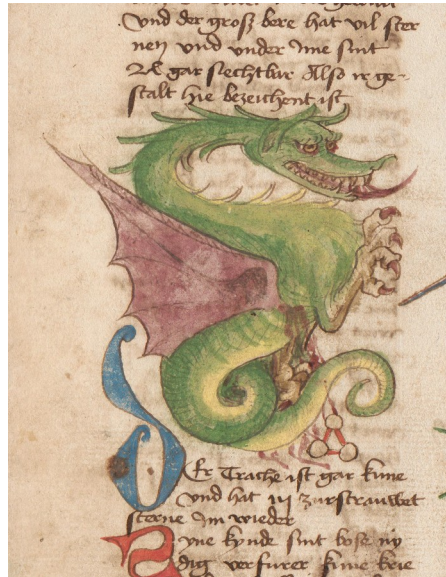 Vnd der groß bere hat vil ster
nen vnd vnder Jme sint
gar siechtbar Also ir ge-
stalt hie bezeichent ist
DEr Trache ist gar kune
vnd hat iij zurstrauwet
sterne Jm wieder
Sine kynde sint bose ny
dig verfurer kune krie